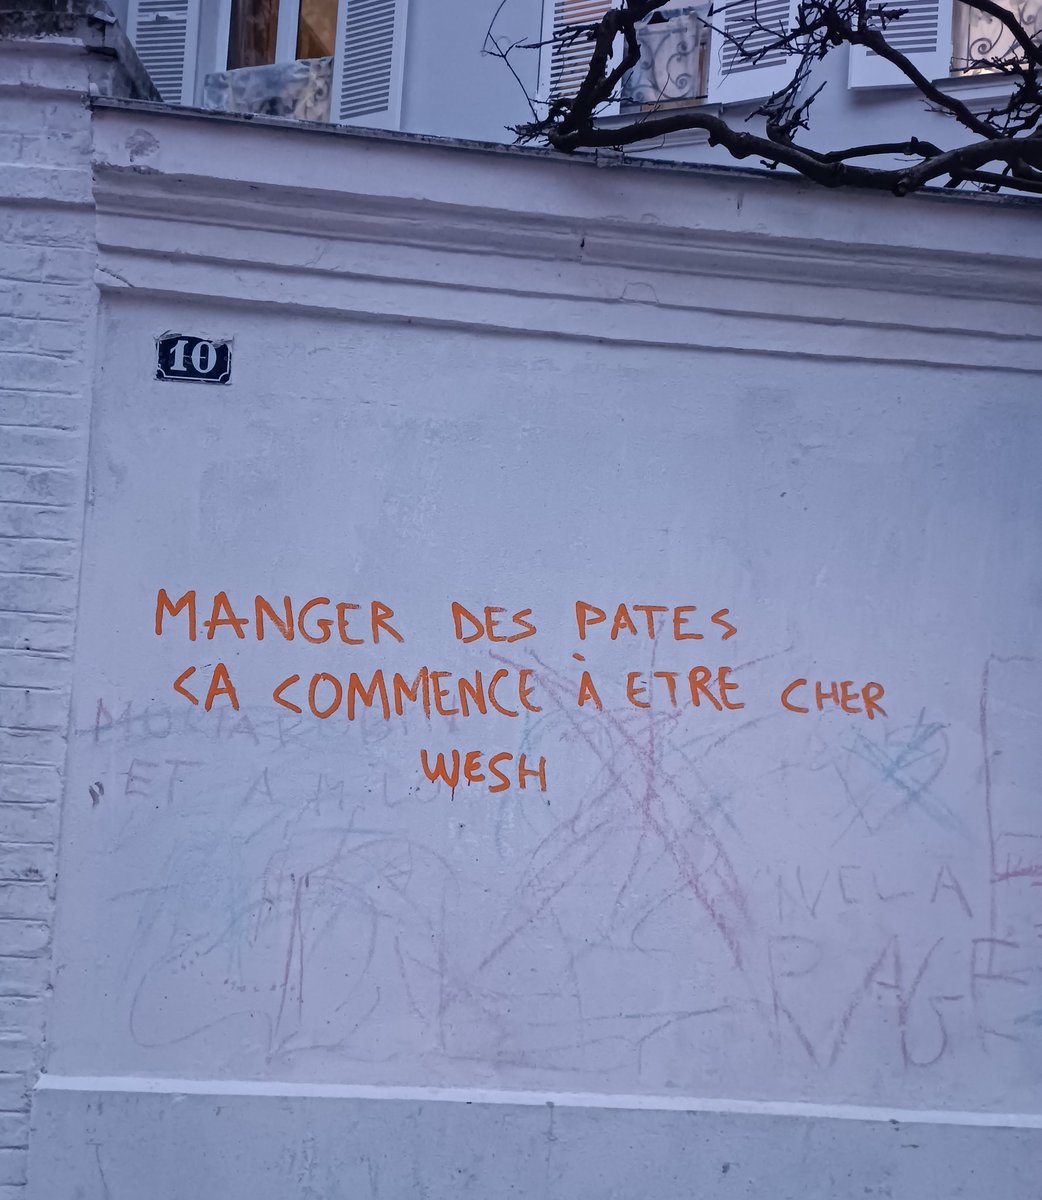 10
MANGER DES PATES
CA COMMENCE À ETRE CHER
WESH
ET